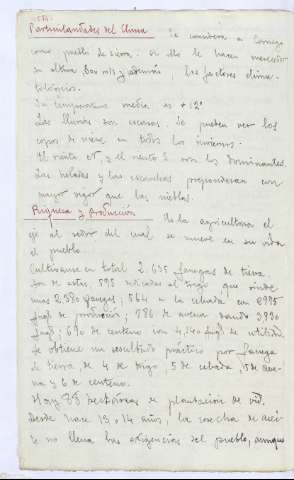 Particularidades del Clima Se considera a
como pueblo de sierra. A ello le hacen merecedor
su altura 800 m/s y además, los factores clima-
tológicos.
Su temperatura media es + 12°
Las lluvias son escasas. Se pueden ver los
copos de nieve en todos los inviernos.
El viento N, y el viento S son los dominantes.
Las heladas y las escarchas preponderan con
mayor rigor que las nieblas.
Riqueza y Producción Es la agricultura el
eje al rededor del cual se mueve en su vida
el pueblo.
Cultívanse en total 2.635 fanegas de tierra.
Son de estas, 595 dedicadas al trigo que rinde
unas 2.380 fanegas; 564 a la cebada con 2995
fngs de producción; 786 de avena dando 3930
fngs; 690 de centeno con 4,140 fngs de utilidad.
Se obtiene un resultado práctico por fanega
de tierra, de 4 de trigo, 5 de cebada, 5 de ave-
na y 6 de centeno.
Hay 88 hectáreas de plantación de vid.
Desde hace 13 o 14 años, la cosecha de acei-
te no llena las exigencias del pueblo, aunque